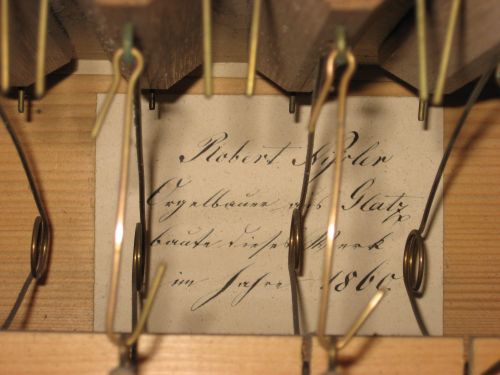 Robert
Orgelbauer aus Glatz
baute dieses Werk
im Jahre 1860.